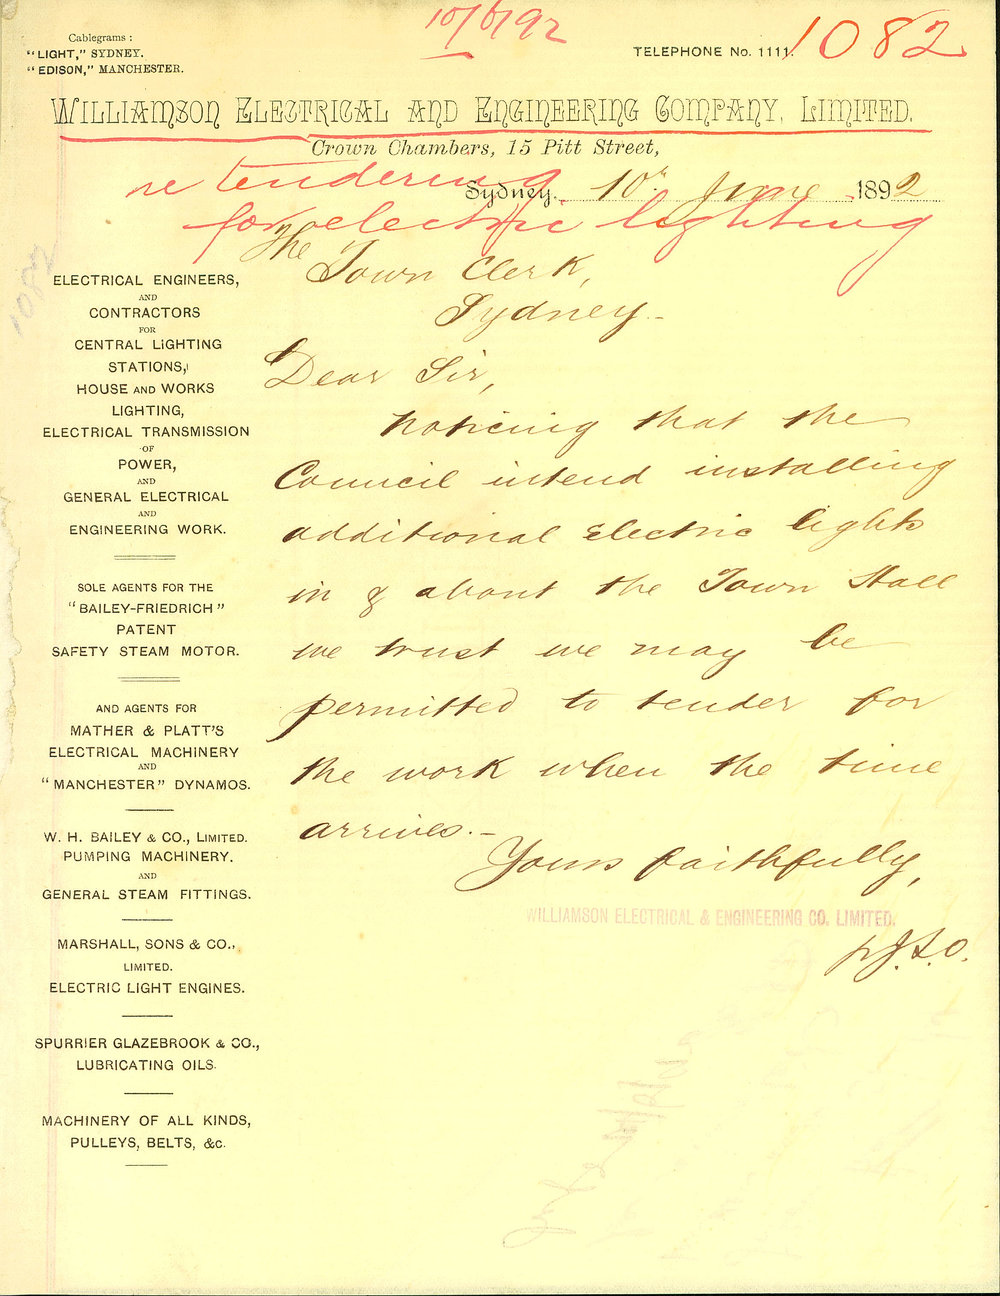 10/6/92
1082
Cablegrams :
"LIGHT," SYDNEY.
"EDISON," MANCHESTER.
TELEPHONE No. 1111.
WILLIAMSON ELECTRICAL AND ENGINEERING COMPANY, LIMITED.
Crown Chambers, 15 Pitt Street,
Sydney, 10th June 1892
re tendering
for electric lighting
1082
ELECTRICAL ENGINEERS,
AND
CONTRACTORS
FOR
CENTRAL LIGHTING
STATIONS,
HOUSE AND WORKS
LIGHTING,
ELECTRICAL TRANSMISSION
OF
POWER,
AND
GENERAL ELECTRICAL
AND
ENGINEERING WORK.
SOLE AGENTS FOR THE
"BAILEY-FRIEDRICH"
PATENT
SAFETY STEAM MOTOR.
AND AGENTS FOR
MATHER & PLATT'S
ELECTRICAL MACHINERY
AND
"MANCHESTER" DYNAMOS.
W. H. BAILEY & CO., LIMITED.
PUMPING MACHINERY.
AND
GENERAL STEAM FITTINGS.
MARSHALL, SONS & CO.,
LIMITED.
ELECTRIC LIGHT ENGINES.
SPURRIER GLAZEBROOK & CO.,
LUBRICATING OILS.
MACHINERY OF ALL KINDS,
PULLEYS, BELTS, &c.
The
Town Clerk,
Sydney.-
Dear Sir,
Noticing that the
Council intend installing
additional Electric lights
in & about the Town Hall
we trust we may be
permitted to tender for
the work when the time
arrives.-
Yours faithfully,
WILLIAMSON ELECTRICAL & ENGINEERING CO. LIMITED.